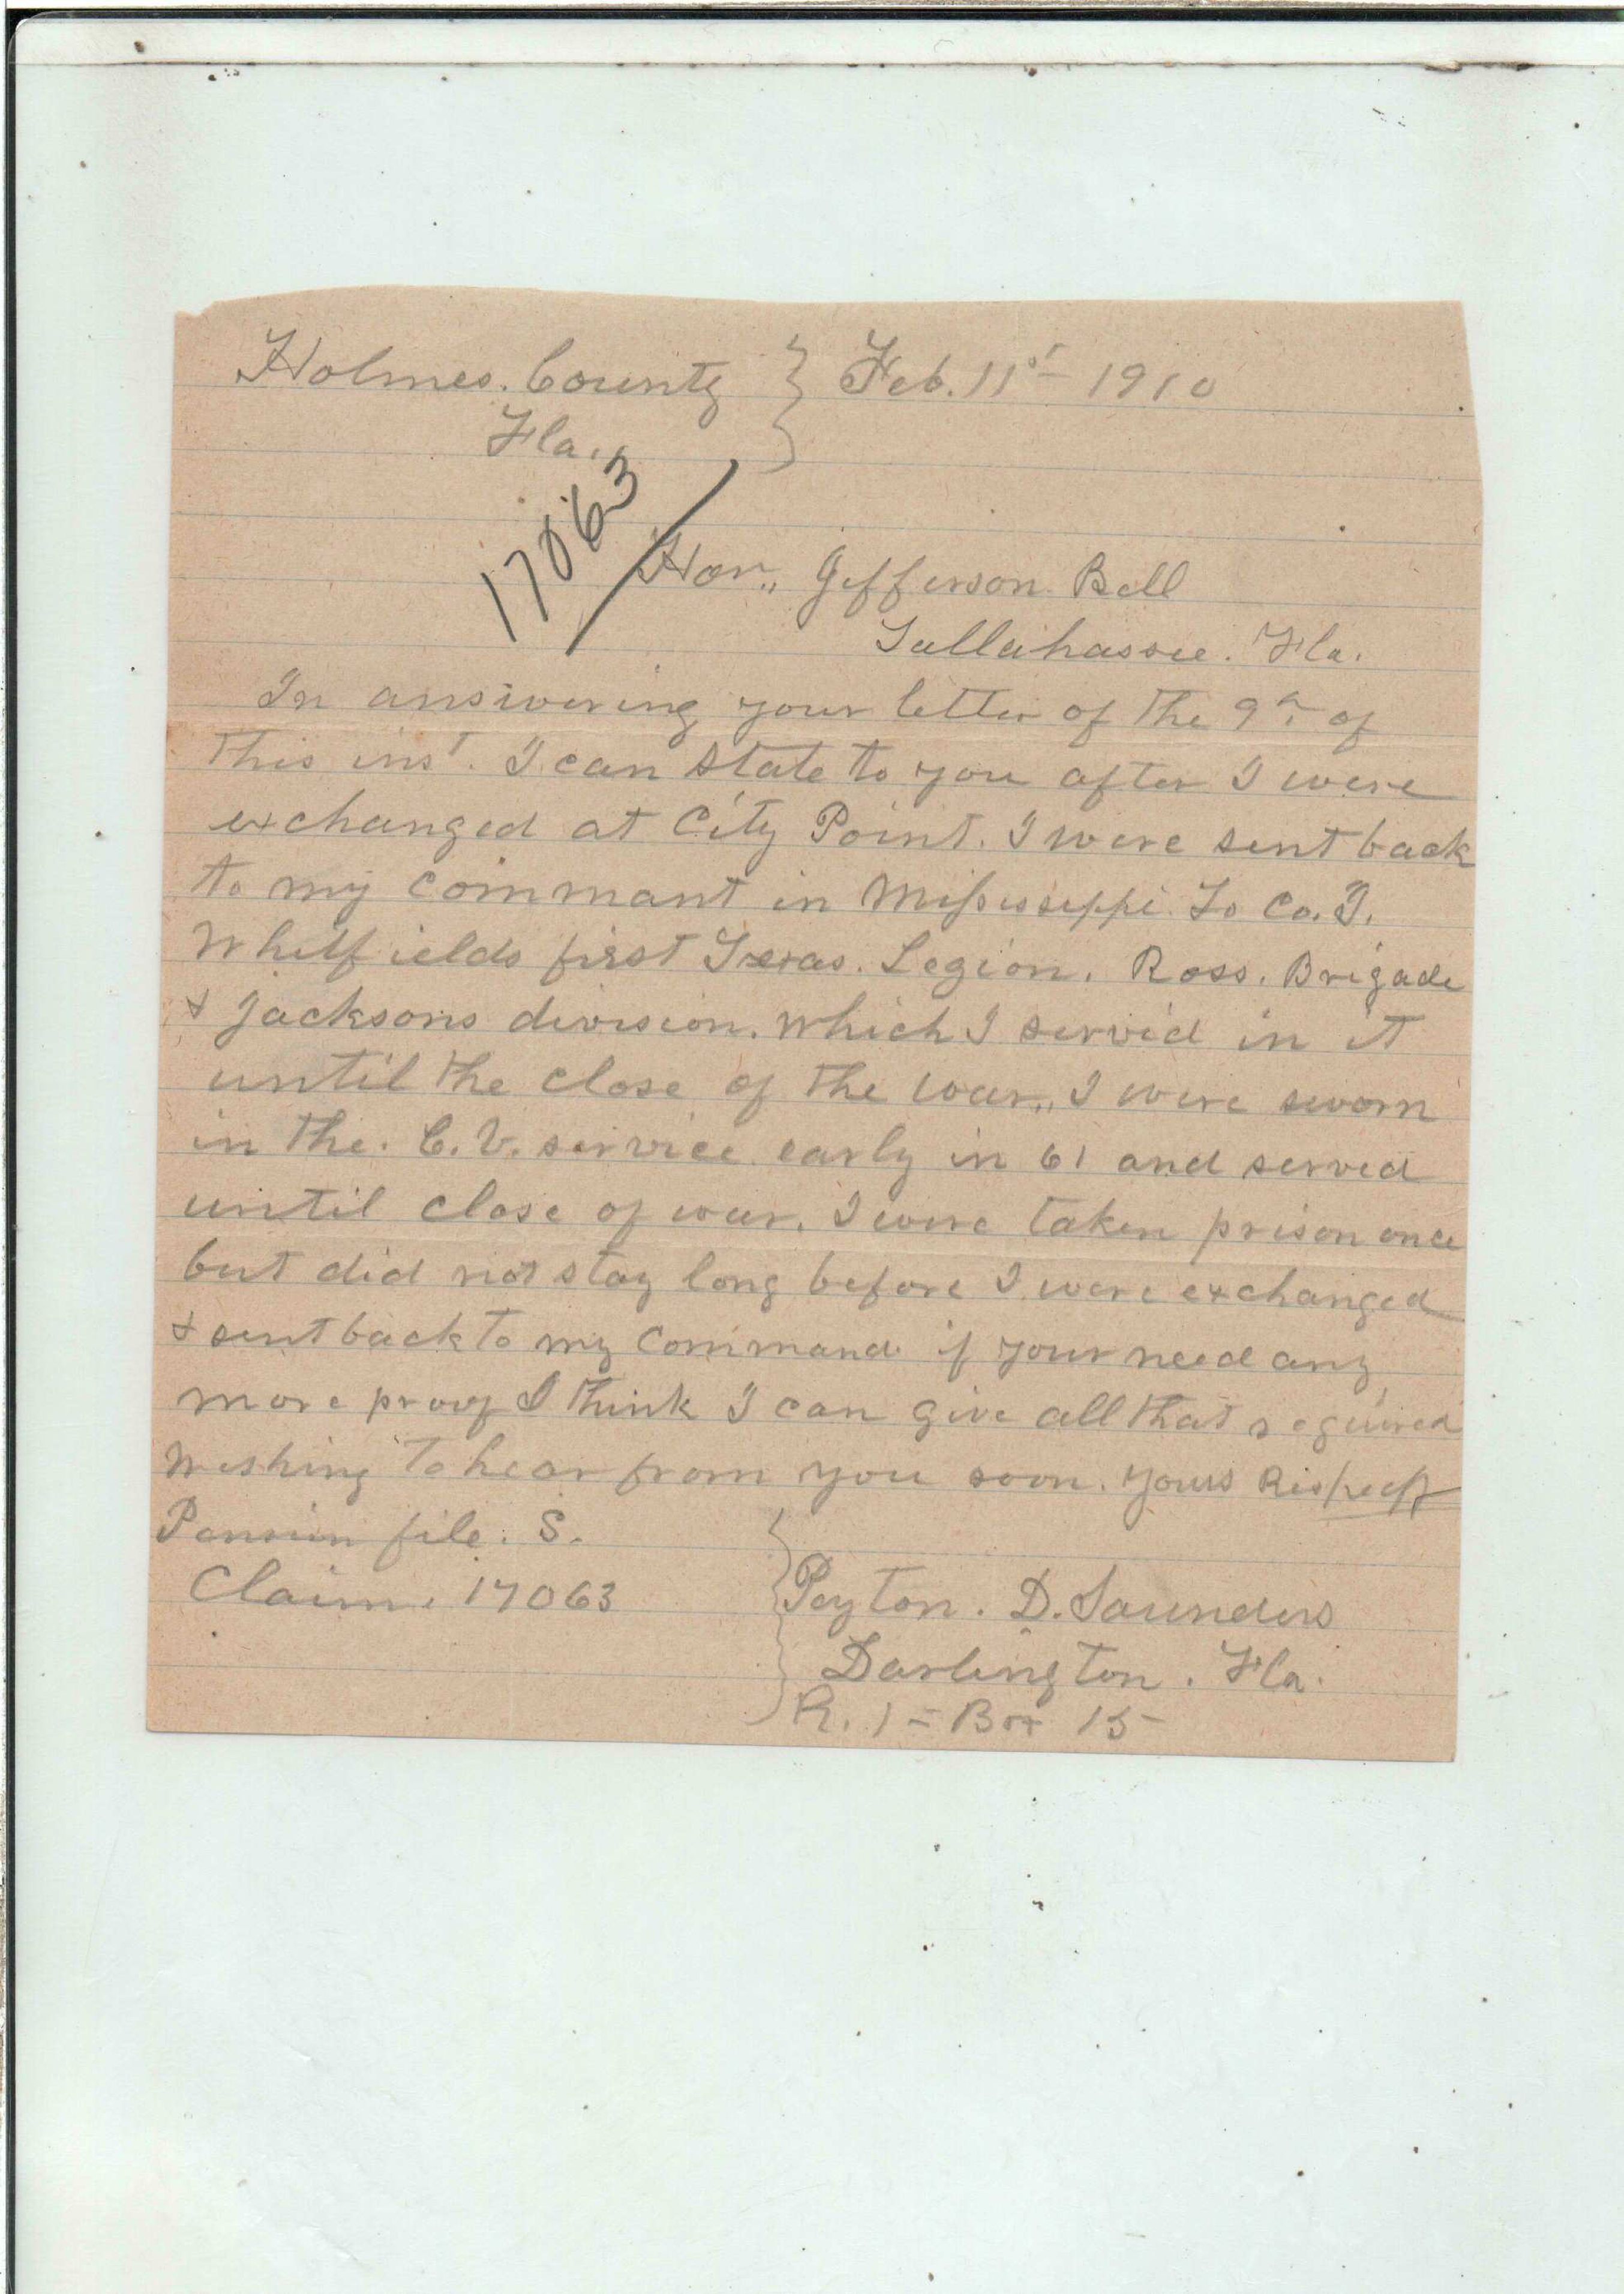 Holmes. County } Feb. 11st - 1910
Fla.
17063
Hon., Gefferson Bell
Tallahassee. Fla.
In answering your letter of the 9th of
this inst. I can state to you after I were
exchanged at City Point. I were sent back
to my commant in Mississeppi To Co. I.
Whitfields first Texas. Legion. Ross. Brigade
& Jacksons division. which I served in it
until the close of the war., I were sworn
in the. C. V. service early in 61 and served
until close of war. I were taken prison once
but did not stay long before I were exchanged
& sent back to my command if your need any
more proof I think I can give all that required
Wishing to hear from you soon. yours Respect
Pension file. S.
Claim. 17063
Peyton. D. Saunders
Darlington. Fla.
R. 1 = Box 15-